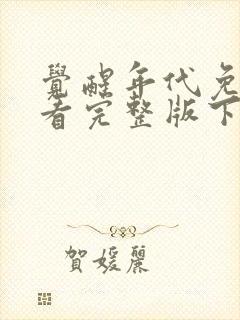 覺醒年代免
看完整版下
賀媛麗